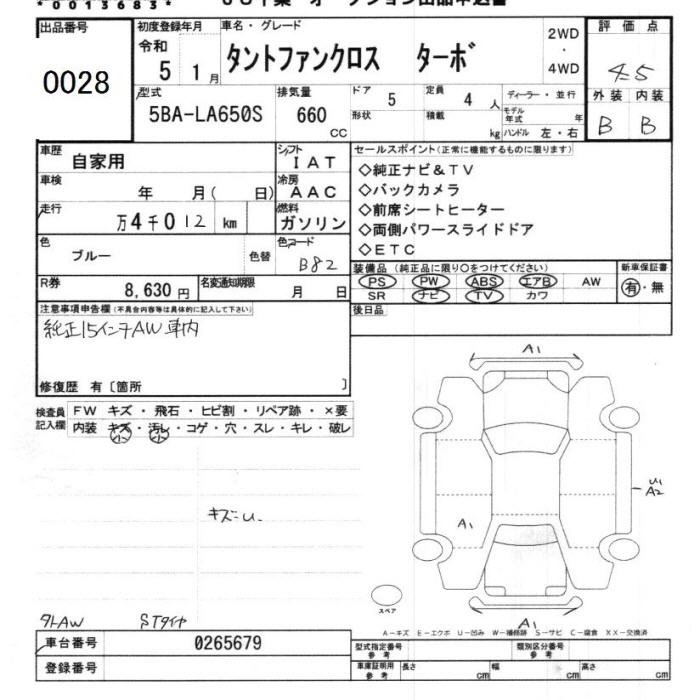 *0013683*
オークション出品申込書
出品番号
0028
初度登録年月
令和
5 1月
車名・グレード
タントファンクロス ターボ
2WD
・
4WD
評価点
4.5
外装 内装
B B
型式
5BA-LA650S
排気量
660
CC
ドア
5
定員
4 人
ディーラー・並行
モデル年式 年
形状
積載
kg
ハンドル 左・右
車歴
自家用
シフト
IAT
車検
年 月( 日)
冷房
AAC
走行
万4千012 km
燃料
ガソリン
色
ブルー
色替
色コード
B82
R券
8,630円
名変通知期限
月 日
セールスポイント(正常に機能するものに限ります)
◇純正ナビ&TV
◇バックカメラ
◇前席シートヒーター
◇両側パワースライドドア
◇ETC
装備品(純正品に限り○をつけてください)
PS PW ABS エアB AW
SR ナビ TV カワ
新車保証書
有・無
後日品
注意事項申告欄(不具合内容等は具体的に記入して下さい)
純正15インチAW車内
修復歴 有〔箇所 〕
検査員
記入欄
FW キズ・飛石・ヒビ割・リペア跡・×要
内装 キズ・汚レ・コゲ・穴・スレ・キレ・破レ
小 小
キズ=U.
A1
U1
A2
A1
A1
スペア
A-キズ E-エクボ U-凹み W-補修跡 S-サビ C-腐食 XX-交換済
タレAW STタイヤ
車台番号
0265679
登録番号
型式指定番号
参考
類別区分番号
参考
車庫証明用
参考
長さ cm
幅 cm
高さ cm